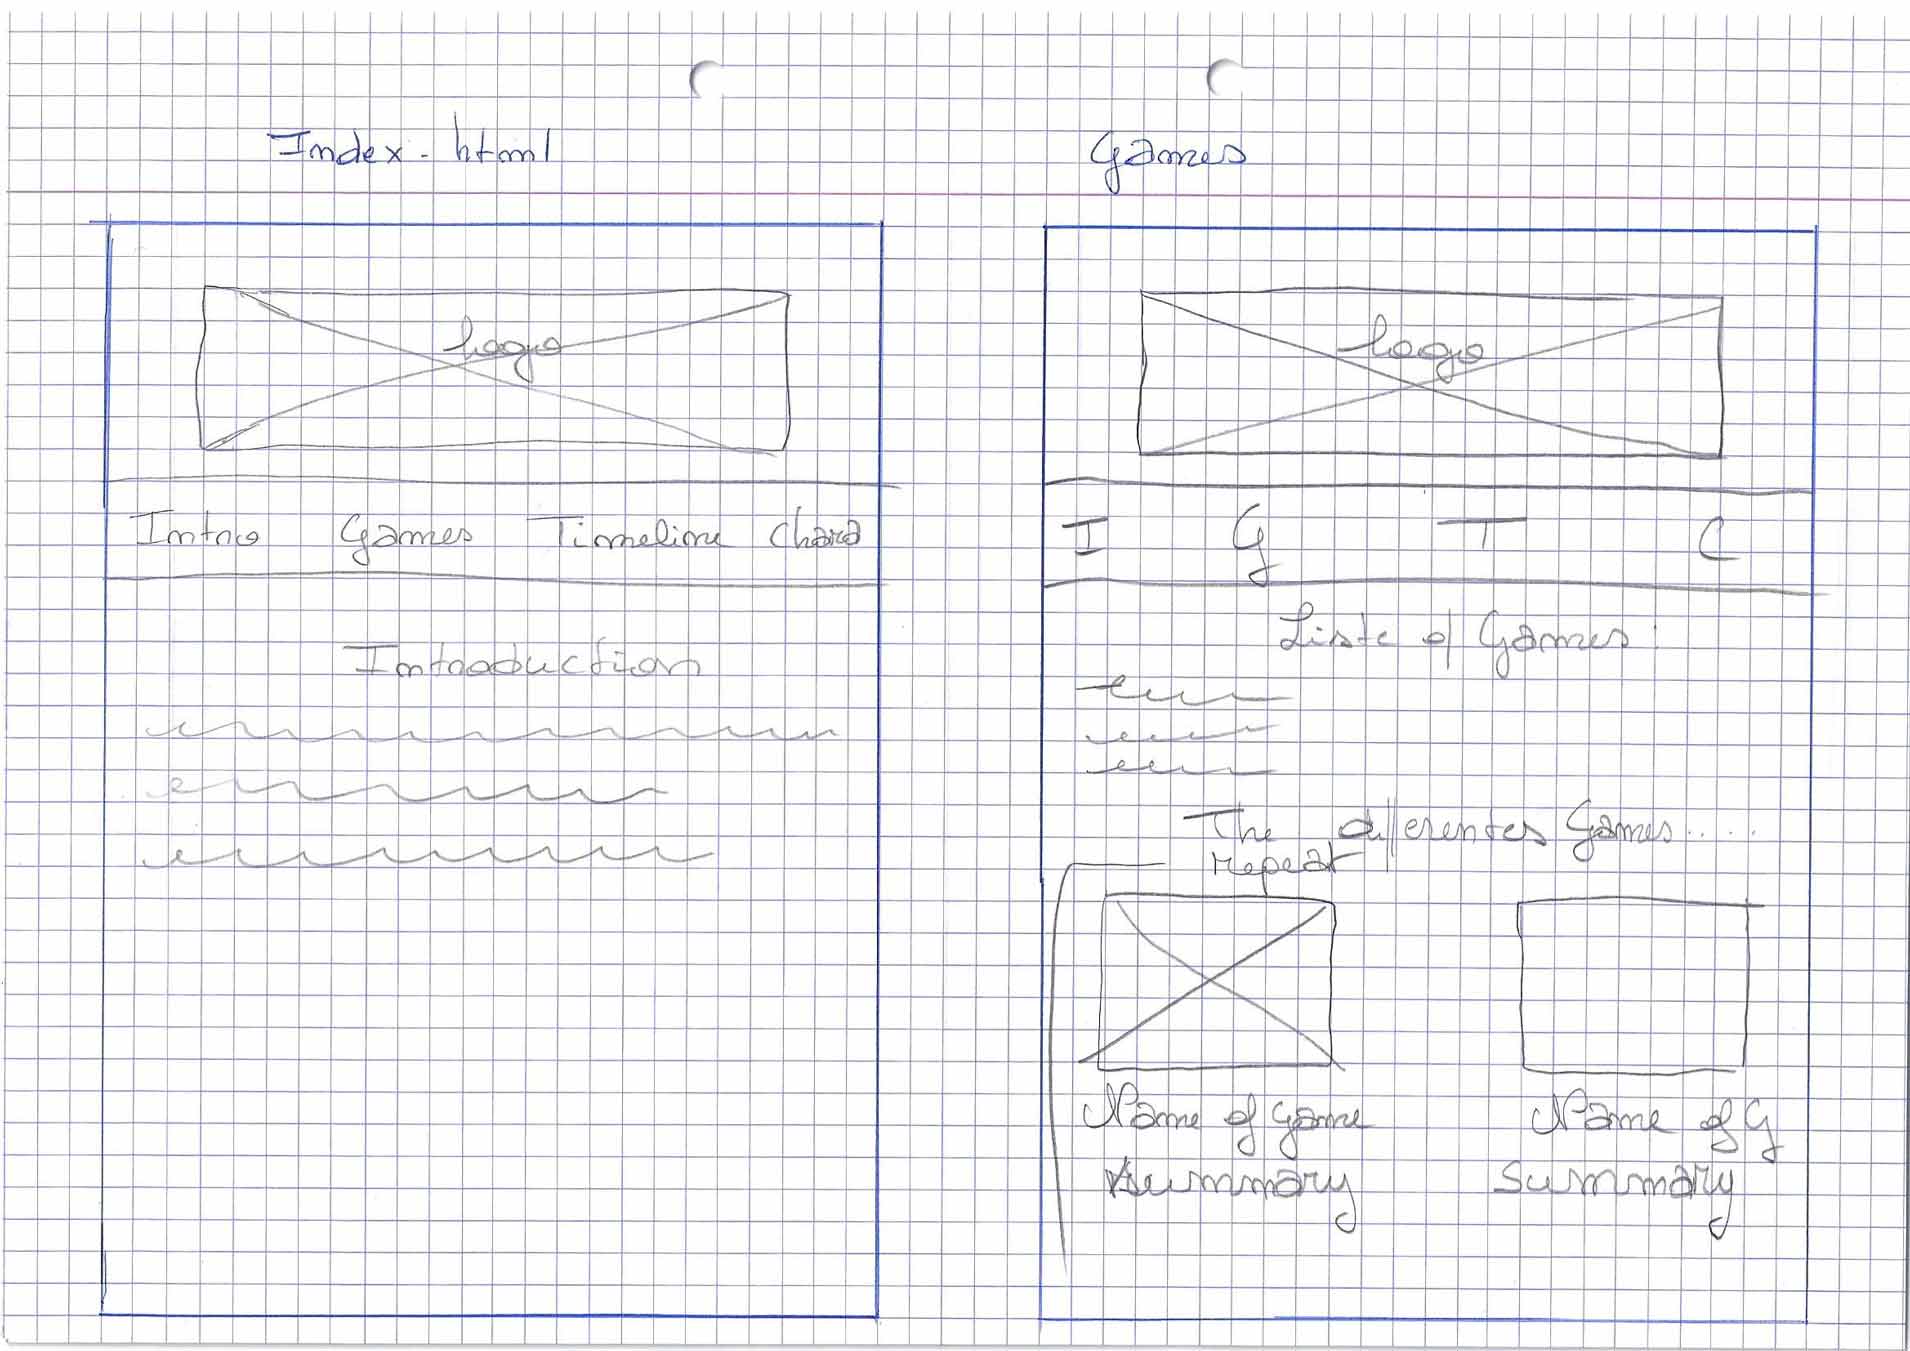 Index.html
Games
Logo
Intro Games Timeline Chara
Introduction
Logo
I G T C
Liste of Games:
The differentes Games.....
repeat
Name of game
summary
Name of G
summary